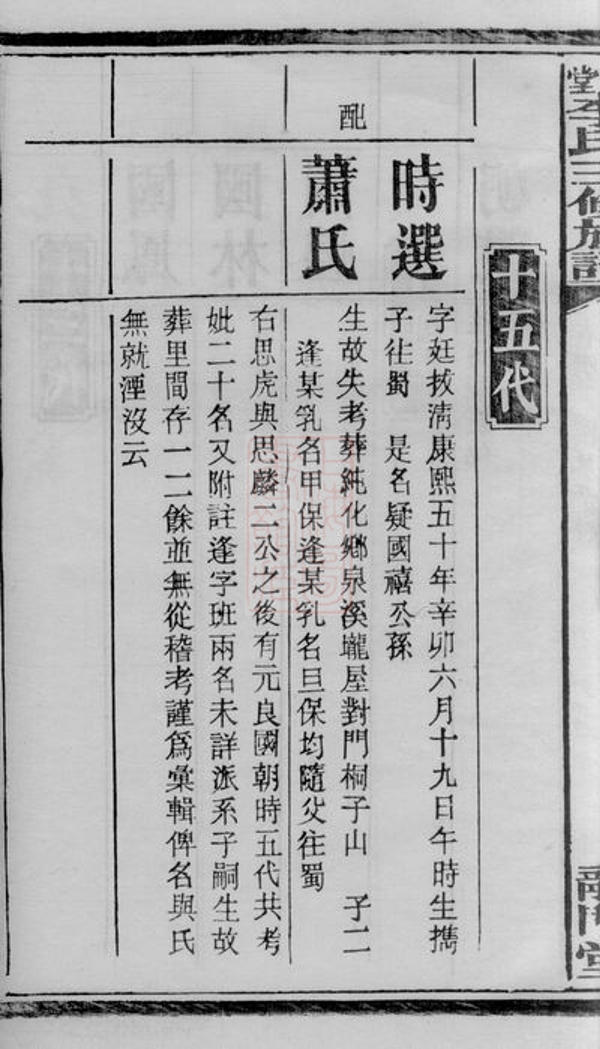 堂李氏三修族譜
十五代
時選
字廷拔清康熙五十年辛卯六月十九日午時生攜
子往蜀　是名疑國禧公孫
配
蕭氏
生故失考葬純化鄉泉溪壠屋對門桐子山　子二
逢某乳名甲保逢某乳名旦保均隨父往蜀
右思虎與思麟二公之後有元良國朝時五代共考
妣二十名又附註逢字班兩名未詳派系子嗣生故
葬里間存一二餘並無從稽考謹為彙輯俾名與氏
無就湮沒云